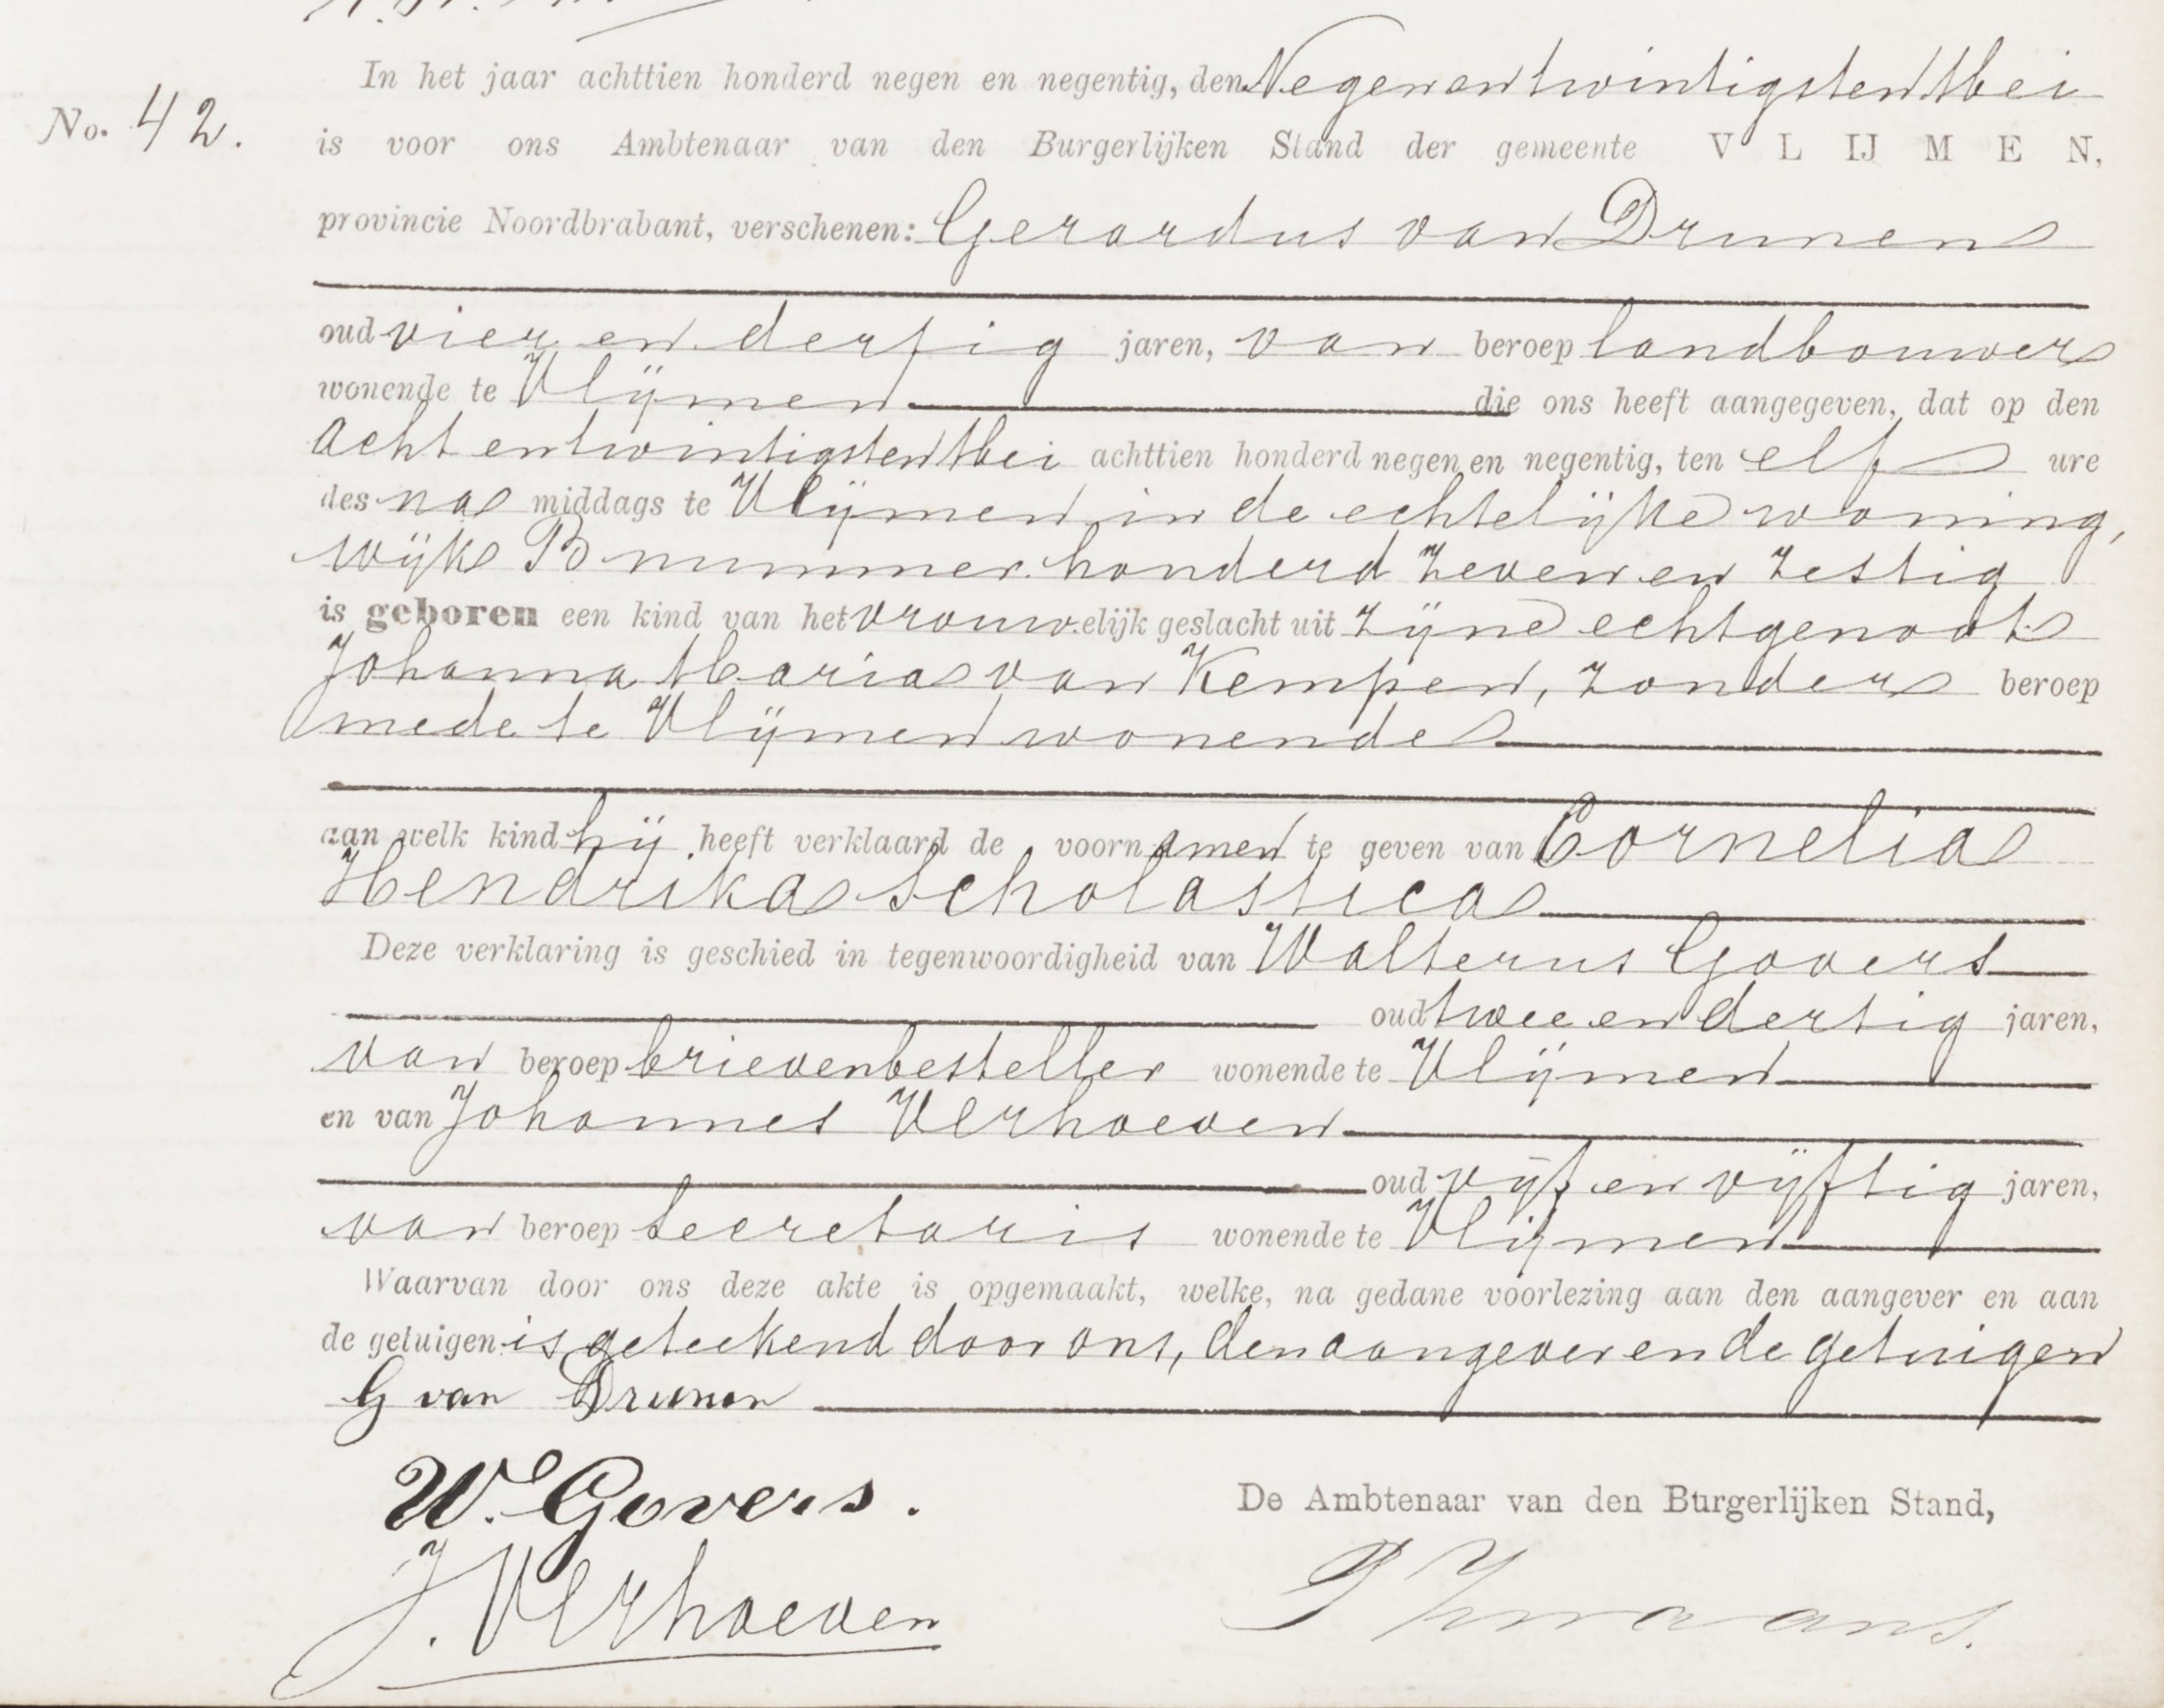 In het jaar achttien honderd negen en negentig, den Negenentwintigsten Mei
No. 42.
is voor ons Ambtenaar van den Burgerlijken Stand der gemeente VLIJMEN,
provincie Noordbrabant, verschenen: Gerardus van Drunen
oud vier en dertig jaren, van beroep landbouwer
wonende te Vlijmen die ons heeft aangegeven, dat op den
achtentwintigsten Mei achttien honderd negen en negentig, ten elf ure
des na middags te Vlijmen in de echtelijke woning,
wijk B nummer honderd zeven en zestig
is geboren een kind van het vrouwelijk geslacht uit zijne echtgenoot
Johanna Maria van Kempen, zonder beroep
mede te Vlijmen wonende
aan welk kind hij heeft verklaard de voornamen te geven van Cornelia
Hendrika Scholastica
Deze verklaring is geschied in tegenwoordigheid van Walterus Govers
oud twee en dertig jaren,
van beroep brievenbesteller wonende te Vlijmen
en van Johannes Verhoeven
oud vijf en vijftig jaren,
van beroep secretaris wonende te Vlijmen
Waarvan door ons deze akte is opgemaakt, welke, na gedane voorlezing aan den aangever en aan
de getuigen is geteekend door ons, den aangever en de getuigen
G van Drunen
W. Govers.
De Ambtenaar van den Burgerlijken Stand,
J. Verhoeven